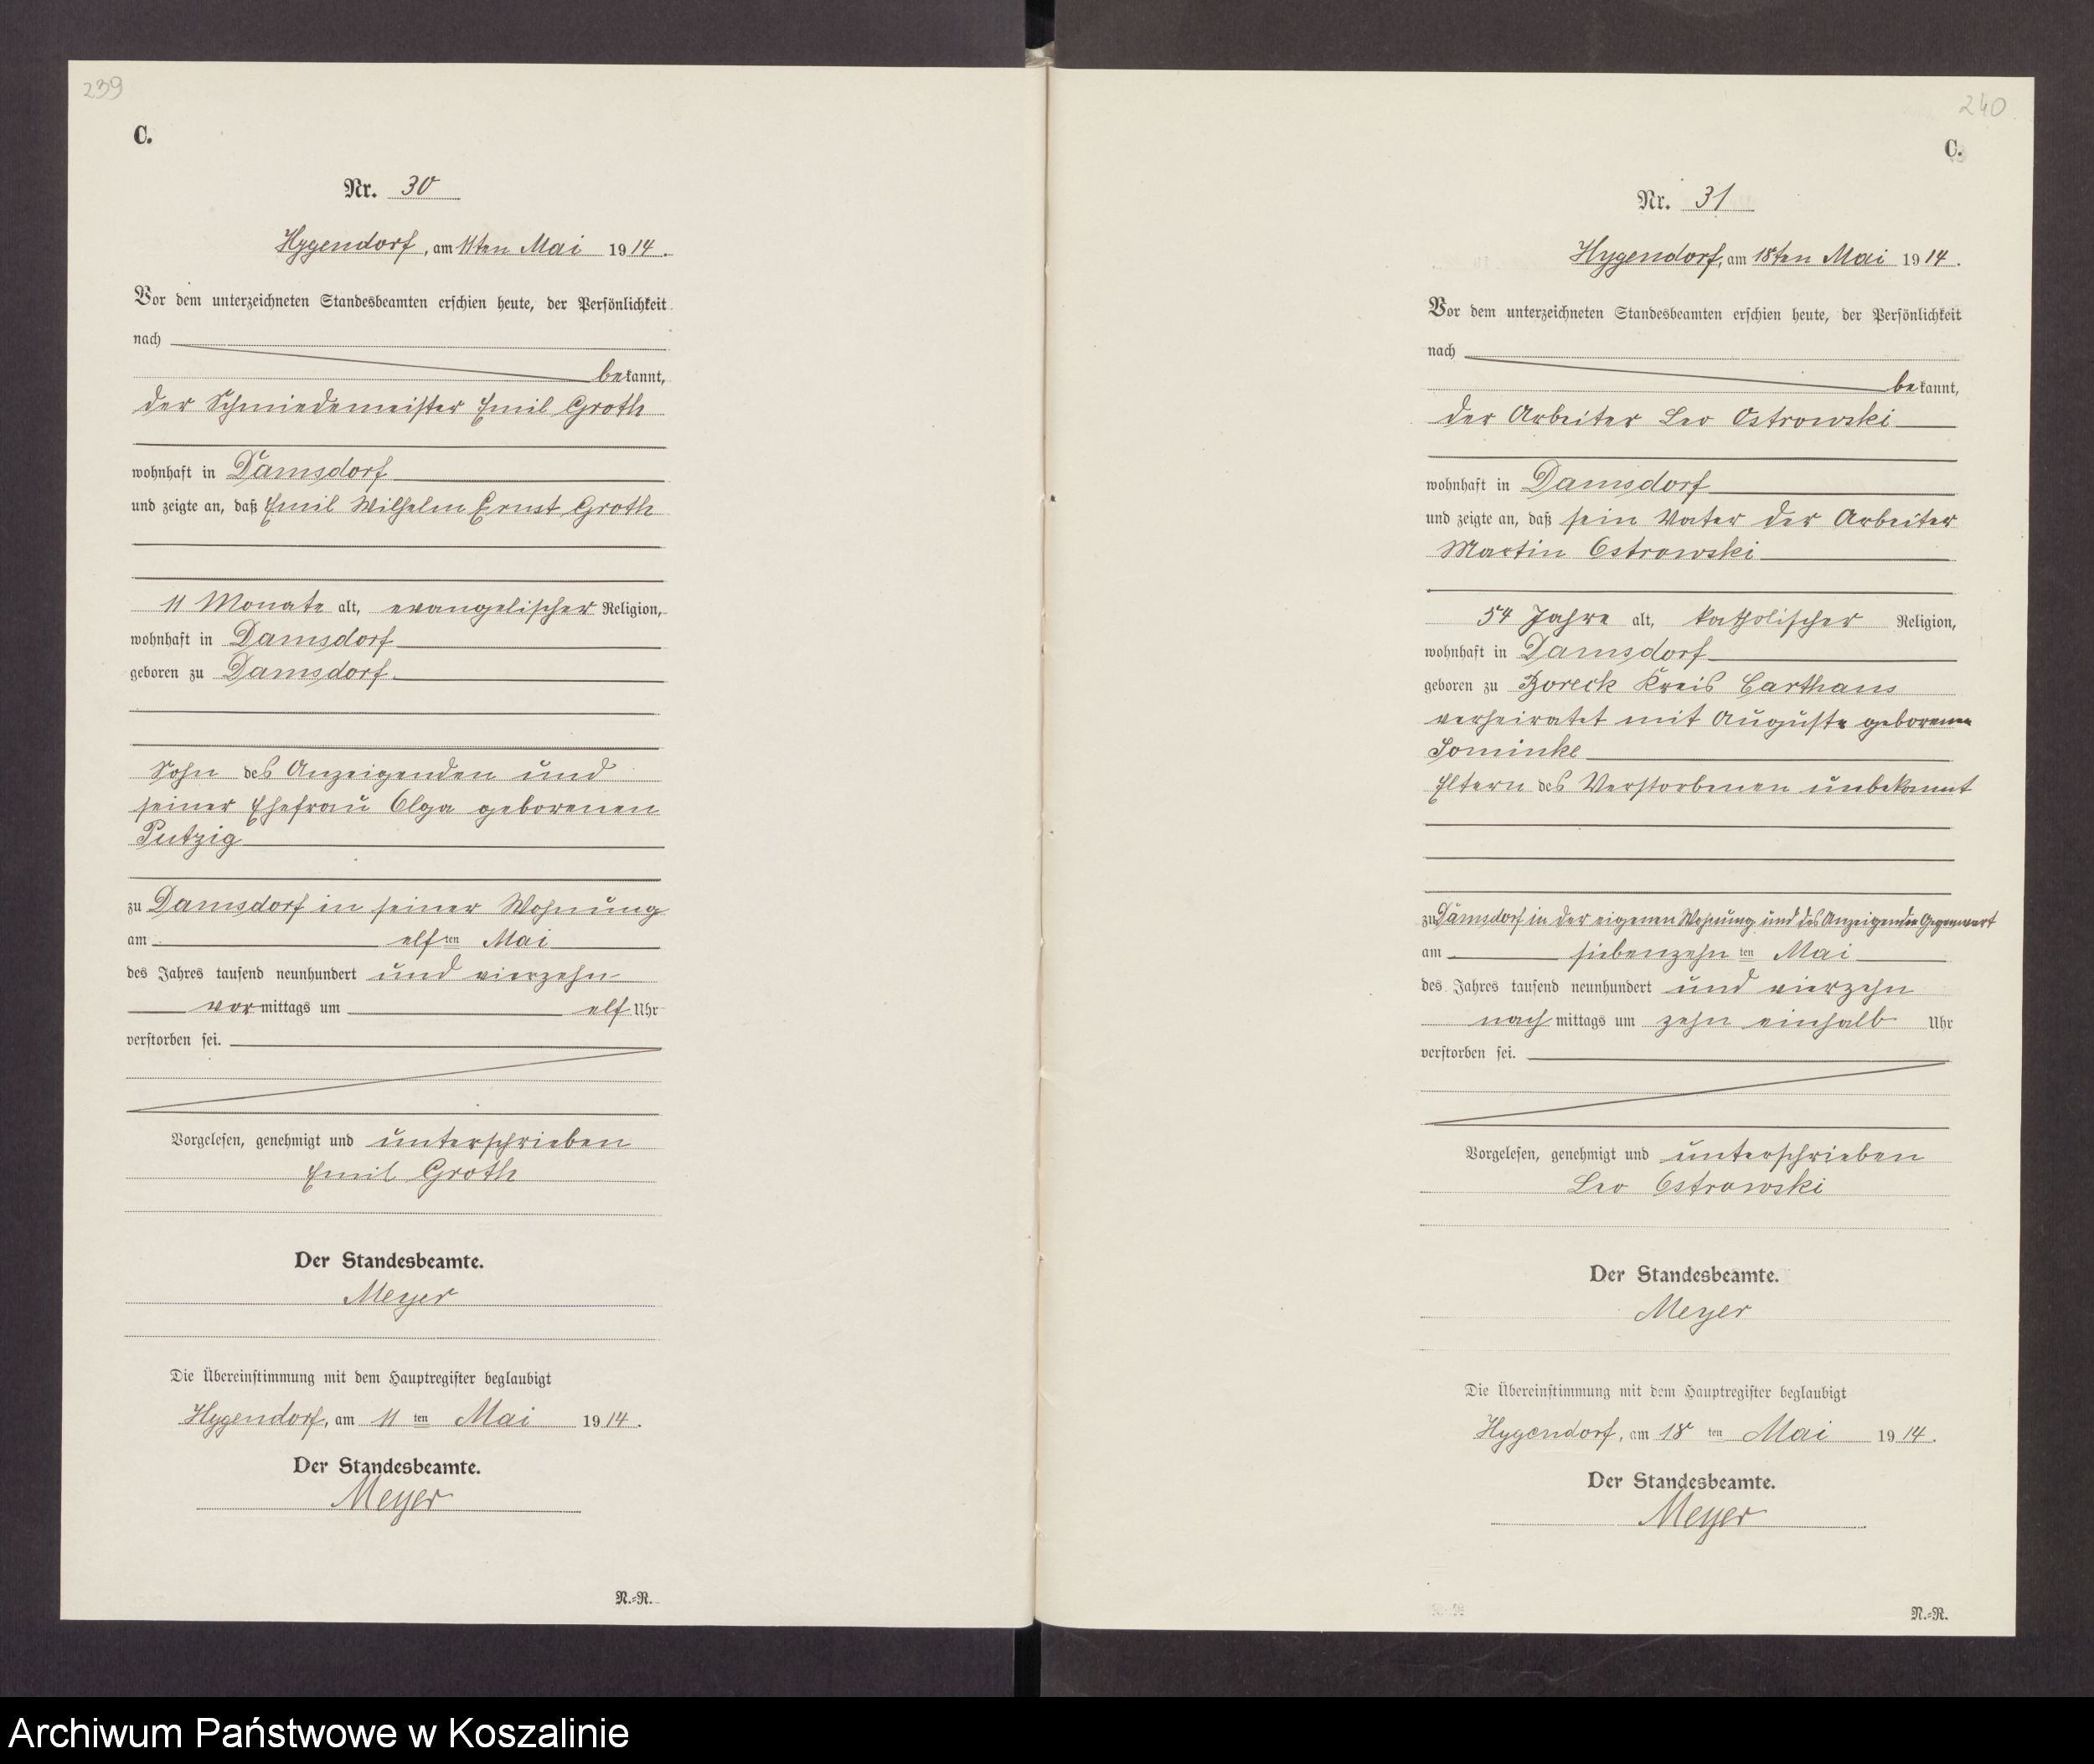 239
C.
Nr. 30
Hygendorf, am 11ten Mai 1914.
Vor dem unterzeichneten Standesbeamten erschien heute, der Persönlichkeit
nach
bekannt,
der Schmiedemeister Emil Groth
wohnhaft in Damsdorf
und zeigte an, daß Emil Wilhelm Ernst Groth
11 Monate alt, evangelischer Religion,
wohnhaft in Damsdorf
geboren zu Damsdorf
Sohn des Anzeigenden und
seiner Ehefrau Olga geborenen
Putzig
zu Damsdorf in seiner Wohnung
am elften Mai
des Jahres tausend neunhundert und vierzehn
vormittags um elf Uhr
verstorben sei.
Vorgelesen, genehmigt und unterschrieben
Emil Groth
Der Standesbeamte.
Meyer
Die Übereinstimmung mit dem Hauptregister beglaubigt
Hygendorf, am 11ten Mai 1914.
Der Standesbeamte.
Meyer
N.-R.
240
C.
Nr. 31
Hygendorf, am 18ten Mai 1914.
Vor dem unterzeichneten Standesbeamten erschien heute, der Persönlichkeit
nach
bekannt,
der Arbeiter Leo Ostrowski
wohnhaft in Damsdorf
und zeigte an, daß sein Vater der Arbeiter
Martin Ostrowski
54 Jahre alt, katholischer Religion,
wohnhaft in Damsdorf
geboren zu Boreck Kreis Carthaus
verheiratet mit Auguste geborenen
Jominke
Eltern des Verstorbenen unbekannt
zu Damsdorf in der eigenen Wohnung und des Anzeigenden Gegenwart
am siebenzehnten Mai
des Jahres tausend neunhundert und vierzehn
nachmittags um zehn einhalb Uhr
verstorben sei.
Vorgelesen, genehmigt und unterschrieben
Leo Ostrowski
Der Standesbeamte.
Meyer
Die Übereinstimmung mit dem Hauptregister beglaubigt
Hygendorf, am 18ten Mai 1914.
Der Standesbeamte.
Meyer
N.-R.
Archiwum Państwowe w Koszalinie